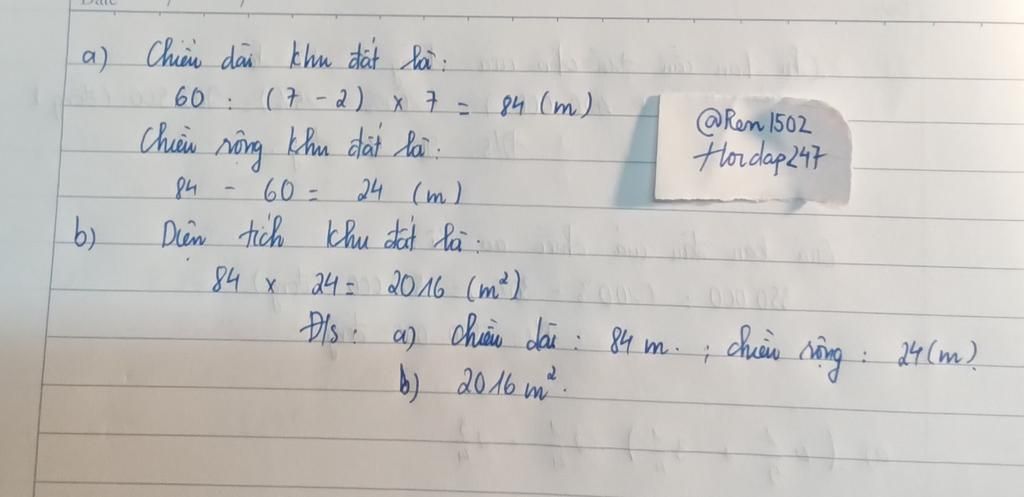 a) Chiều dài khu đất là:
60 : (7 - 2) x 7 = 84 (m)
Chiều rộng khu đất là:
84 - 60 = 24 (m)
b) Diện tích khu đất là:
84 x 24 = 2016 (m²)
Đ/s : a) chiều dài : 84 m. ; chiều rộng : 24 (m)
b) 2016 m².
@Ren1502
Hoidap247